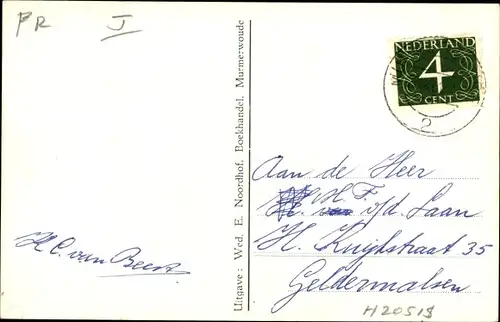 PR J
NEDERLAND
4
CENT
2
Uitgave: Wed. E. Noordhof, Boekhandel, Murmerwoude
Aan de Heer
H. F.
v/d. Laan
H. Kuijkstraat 35
Geldermalsen
H. C. van Beest
H20519